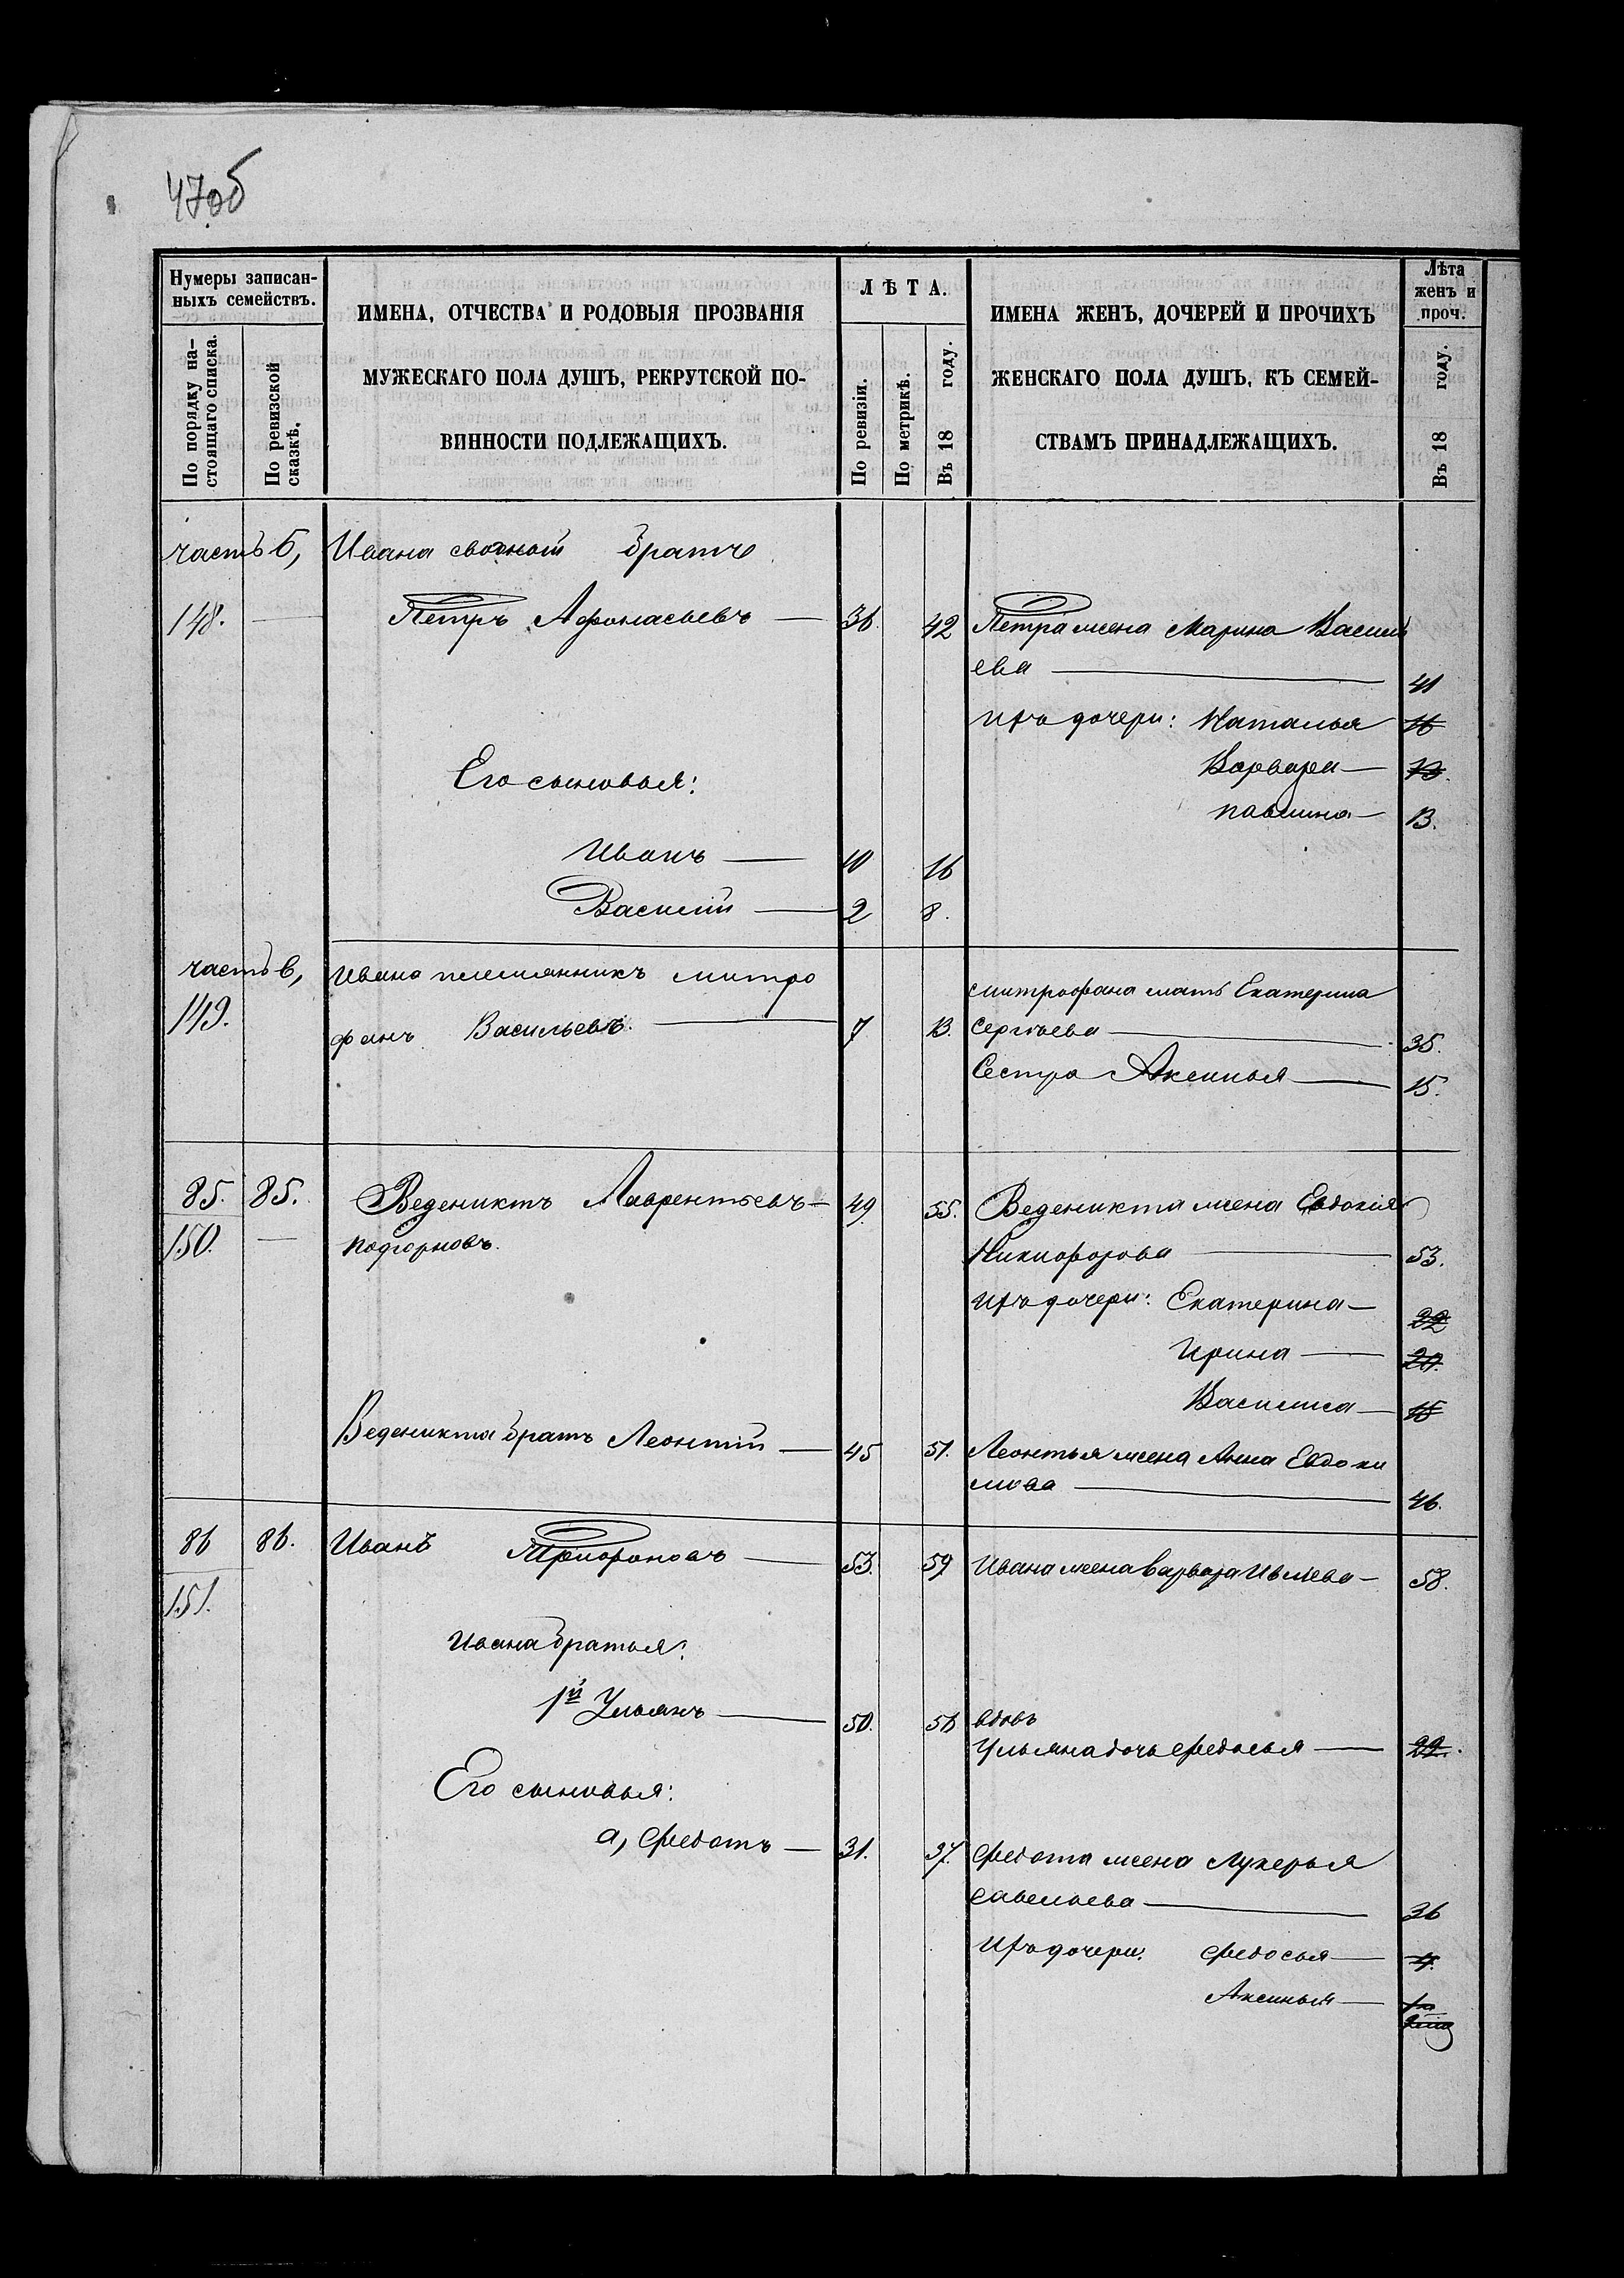 47об
Нумеры записан-
ныхъ семействъ.
По порядку на-
стоящаго списка.
По ревизской
сказкѣ.
ИМЕНА, ОТЧЕСТВА И РОДОВЫЯ ПРОЗВАНІЯ
МУЖЕСКАГО ПОЛА ДУШЪ, РЕКРУТСКОЙ ПО-
ВИННОСТИ ПОДЛЕЖАЩИХЪ.
ЛѢТА.
По ревизіи.
По метрикѣ.
Въ 18 году.
ИМЕНА ЖЕНЪ, ДОЧЕРЕЙ И ПРОЧИХЪ
ЖЕНСКАГО ПОЛА ДУШЪ, КЪ СЕМЕЙ-
СТВАМЪ ПРИНАДЛЕЖАЩИХЪ.
Лѣта
женъ и
проч.
Въ 18 году.
часть б, Ивана сводной братъ
148. — Петръ Афонасьевъ — 36. 42 Петра жена Марина Василь
ева — 41
Ихъ дочери: Наталья 16
Его сыновья: Варвара —
павлина — 13.
Иванъ — 10 16
Василій — 2 8.
часть в, Ивана племянникъ митро
149. фанъ Васильевъ. — 7 13.
митрофана мать Екатерина
Сергѣева — 35.
Сестра Аксинья — 15.
85. 85. Веденикть Лаврентьевъ — 49. 55. Веденикта жена Евдокія
150. — подгорновъ. Никифорова — 53.
Ихъ дочери: Екатерина — 22
Ирина — 20.
Василиса — 15
Веденикта братъ Леонтій — 45 51. Леонтья жена Анна Евдоки
мова — 46.
86 86. Иванъ — 53. 59 Ивана жена варвара — 58.
151.
Ивана братья:
1й Ульянъ — 50. 56 вдовъ
Ульяна дочь Федосья — 22.
Его сыновья:
а, Федотъ — 31. 37. Федота жена Лукерья
савельева — 36
Ихъ дочери: Федосья — 4.
Аксинья —